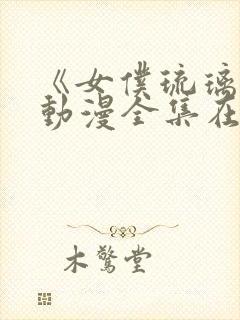 《女僕琉璃
動漫全集在
木驚堂